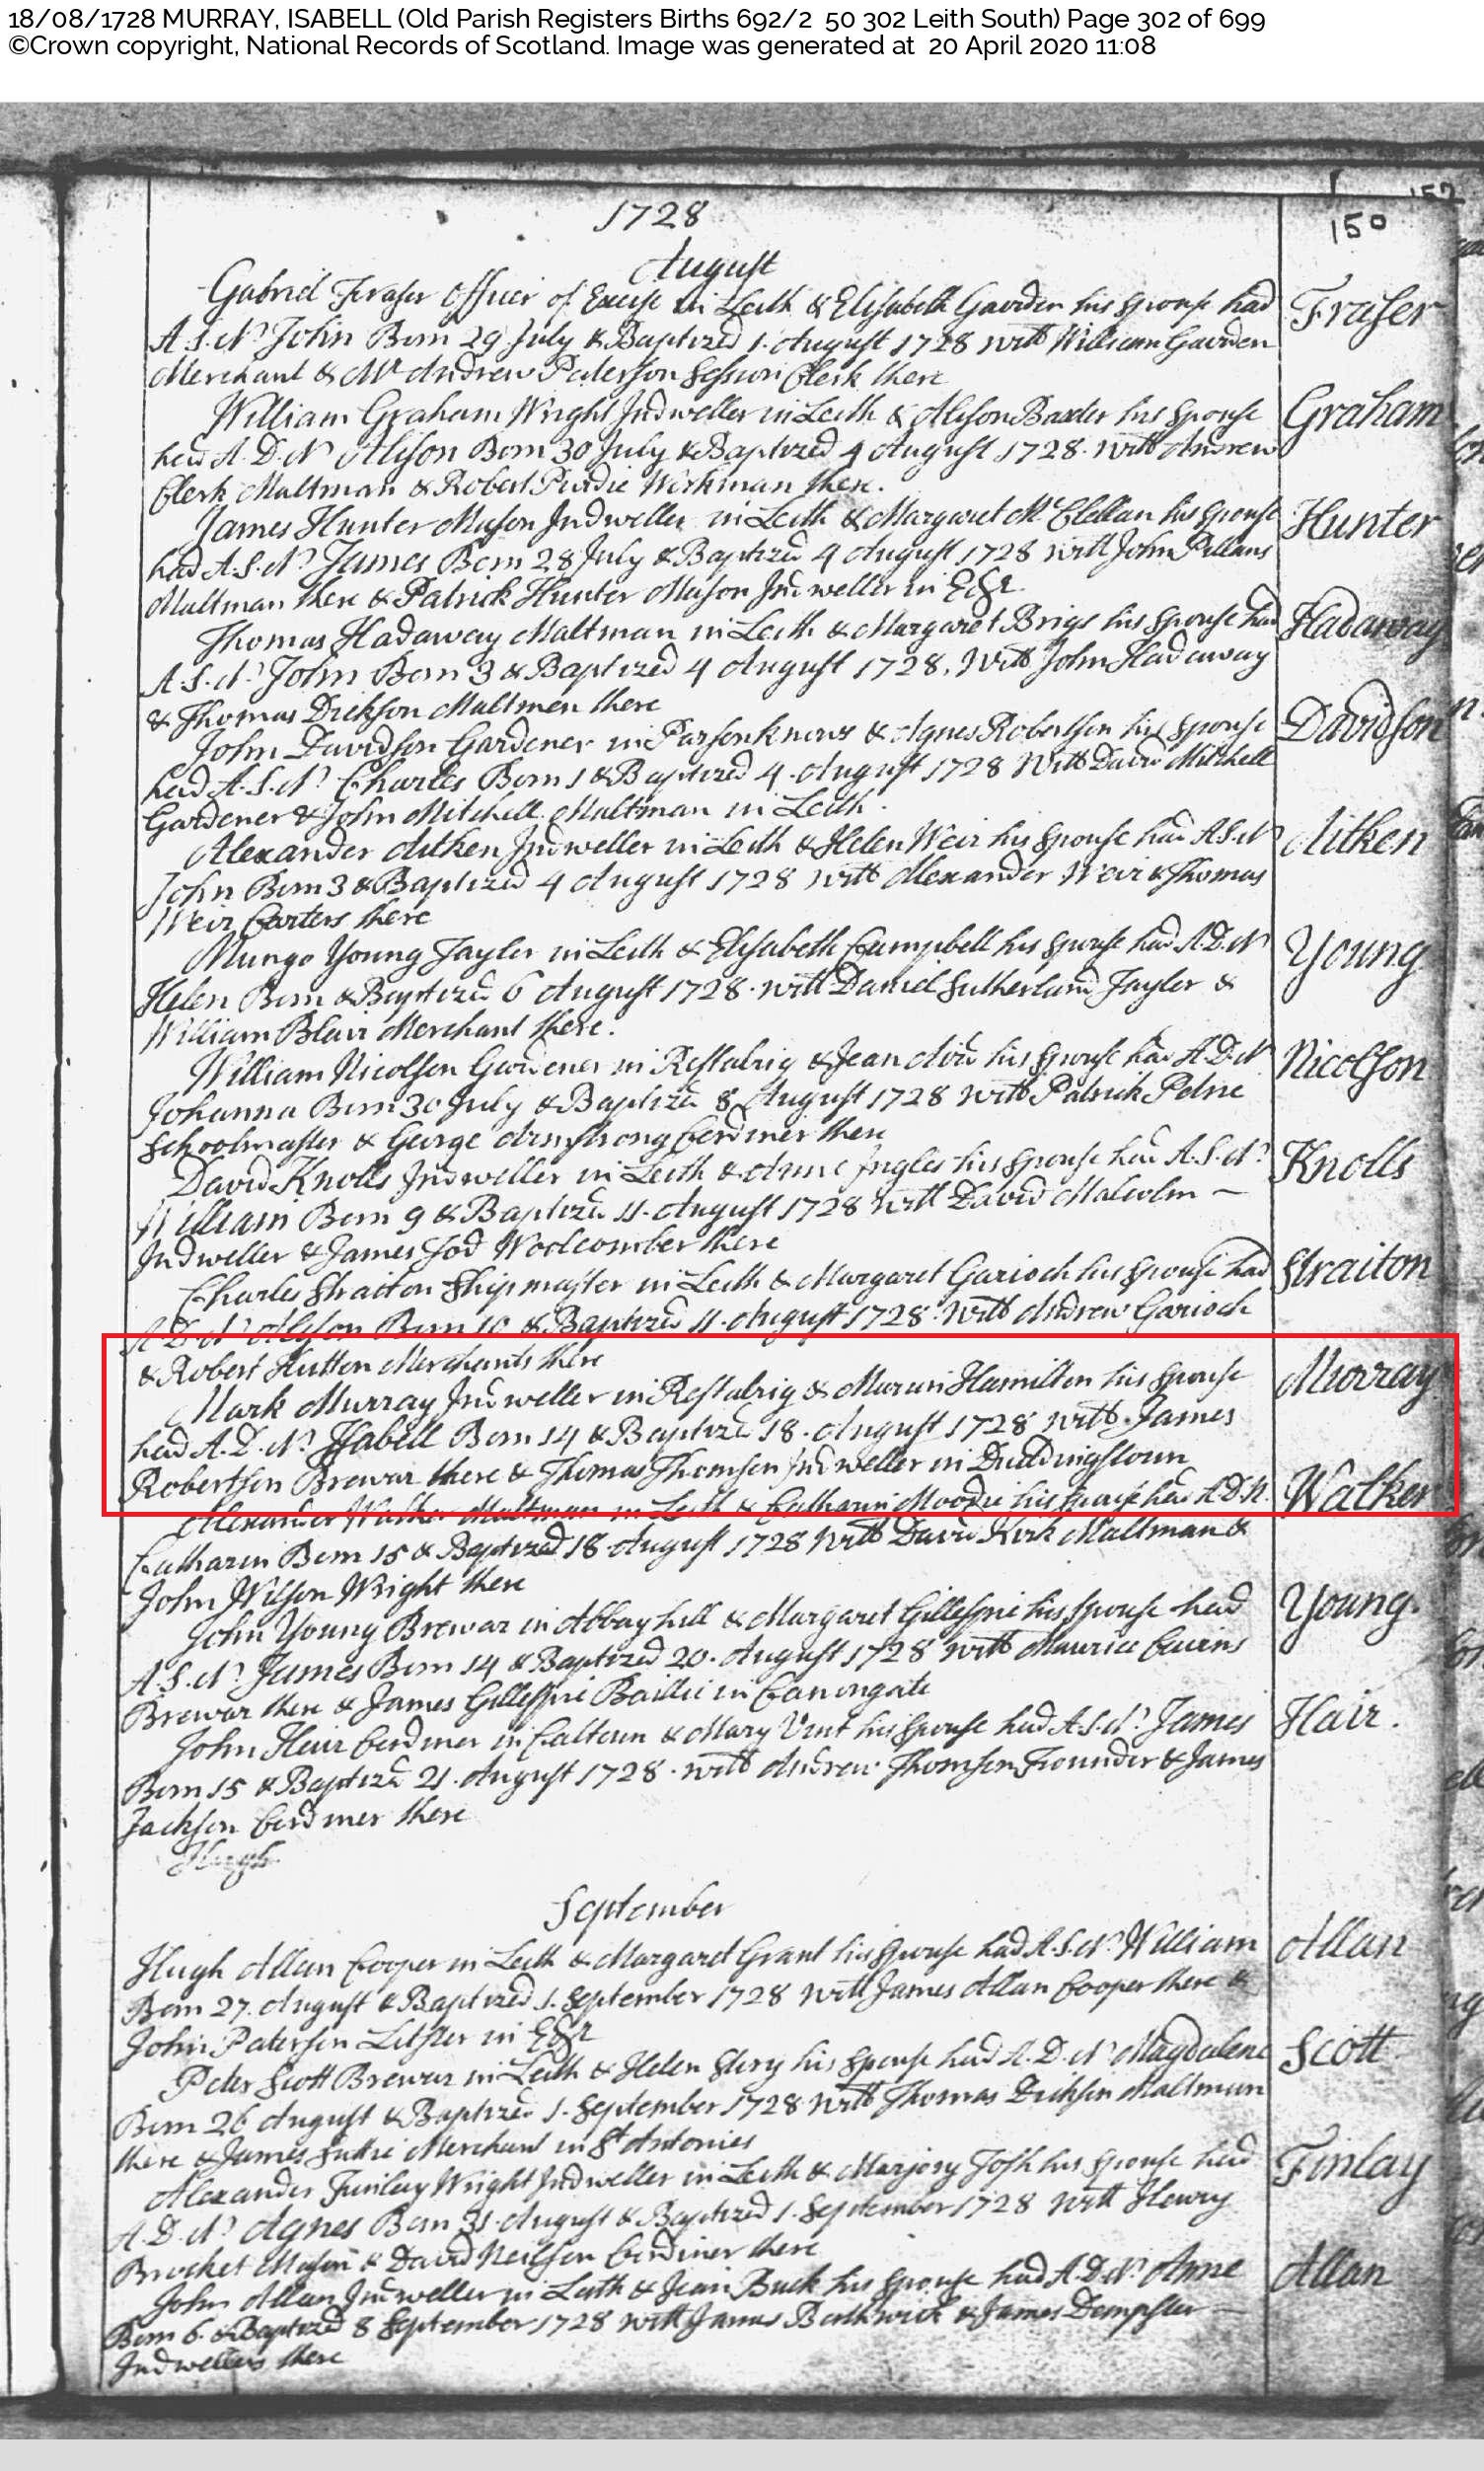 18/08/1728 MURRAY, ISABELL (Old Parish Registers Births 692/2 50 302 Leith South) Page 302 of 699
©Crown copyright, National Records of Scotland. Image was generated at 20 April 2020 11:08
152
150
1728
August
Gabriel Fraser Officer of Excise in Leith & Elisabeth Gavden his spouse had Fraser
A.S.N. John Born 29 July & Baptized 1. August 1728 witt William Gavden
Merchant & Mr Andrew Paterson Session Clerk there
William Graham Wright Indweller in Leith & Alison Baxter his spouse Graham
had A.D.N Alison Born 30 July & Baptized 4 August 1728. witt Andrew
Clerk Maltman & Robert Purdie Workman there.
James Hunter Mason Indweller in Leith & Margaret Mc Clellan his spouse Hunter
had A.S.N. James Born 28 July & Baptized 4 August 1728 witt John Pillans
Maltman there & Patrick Hunter Mason Indweller in Edr
Thomas Hadaway Maltman in Leith & Margaret Brigs his spouse had Hadaway
A.S.N. John Born 3 & Baptized 4 August 1728. witt John Hadaway
& Thomas Dickson Maltmen there
John Davidson Gardener in Parsonknows & Agnes Robertson his spouse Davidson
had A.S.N. Charles Born 1 & Baptized 4. August 1728 witt David Mitchell
Gardener & John Mitchell Maltman in Leith.
Alexander Aitken Indweller in Leith & Helen Weir his spouse had A.S.N Aitken
John Born 3 & Baptized 4 August 1728 witt Alexander Weir & Thomas
Weir Carters there
Mungo Young Taylor in Leith & Elisabeth Campbell his spouse had A.D.N Young
Helen Born & Baptized 6 August 1728. witt Daniel Sutherland Taylor &
William Blair Merchant there.
William Nicolson Gardener in Restalrig & Jean his spouse had A.D.N Nicolson
Johanna Born 30 July & Baptized 8 August 1728 witt Patrick Petrie
Schoolmaster & George Armstrong Cordiner there
David Knolls Indweller in Leith & Anne Ingles his spouse had A.S.N. Knolls
William Born 9 & Baptized 11. August 1728 witt David Malcolm
Indweller & James Tod Woolcomber there
Charles Straiton Shipmaster in Leith & Margaret Garioch his spouse had Straiton
A.D.N. Alison Born 10 & Baptized 11. August 1728. witt Andrew Garioch
& Robert Hutton Merchants there
Mark Murray Indweller in Restalrig & Marion Hamilton his spouse Murray
had A.D.N. Isabell Born 14 & Baptized 18. August 1728 witt James
Robertson Brewar there & Thomas Thomson Indweller in Duddingstoun
Alexander Walker Maltman in Leith & Catharin Moodie his spouse had A.D.N. Walker
Catharin Born 15 & Baptized 18 August 1728 witt David Kirk Maltman &
John Wilson Wright there
John Young Brewar in Abbayhill & Margaret Gillespie his spouse had Young.
A.S.N. James Born 14 & Baptized 20. August 1728 witt Maurice Cairns
Brewar there & James Gillespie Baillie in Canongate
John Hair Cordiner in Caltoun & Mary Vint his spouse had A.S.N. James Hair.
Born 15 & Baptized 21. August 1728. witt Andrew Thomson Founder & James
Jackson Cordiner there
Hugh
September
Hugh Allan Cooper in Leith & Margaret Grant his spouse had A.S.N. William Allan
Born 27. August & Baptized 1. September 1728 witt James Allan Cooper there &
John Paterson Litster in Edr
Peter Scott Brewar in Leith & Helen Story his spouse had A.D.N Magdalene Scott
Born 26 August & Baptized 1. September 1728 witt Thomas Dickson Maltman
there & James Suttie Merchant in St Antonies
Alexander Finlay Wright Indweller in Leith & Marjory Tosh his spouse had Finlay
A.D.N. Agnes Born 31. August & Baptized 1. September 1728 witt Henry
Brocket Mason & David Neilson Cordiner there
John Allan Indweller in Leith & Jean Buck his spouse had A.D.N. Anne Allan
Born 6. & Baptized 8 September 1728 witt James Borthwick & James Dempster
Indwellers there